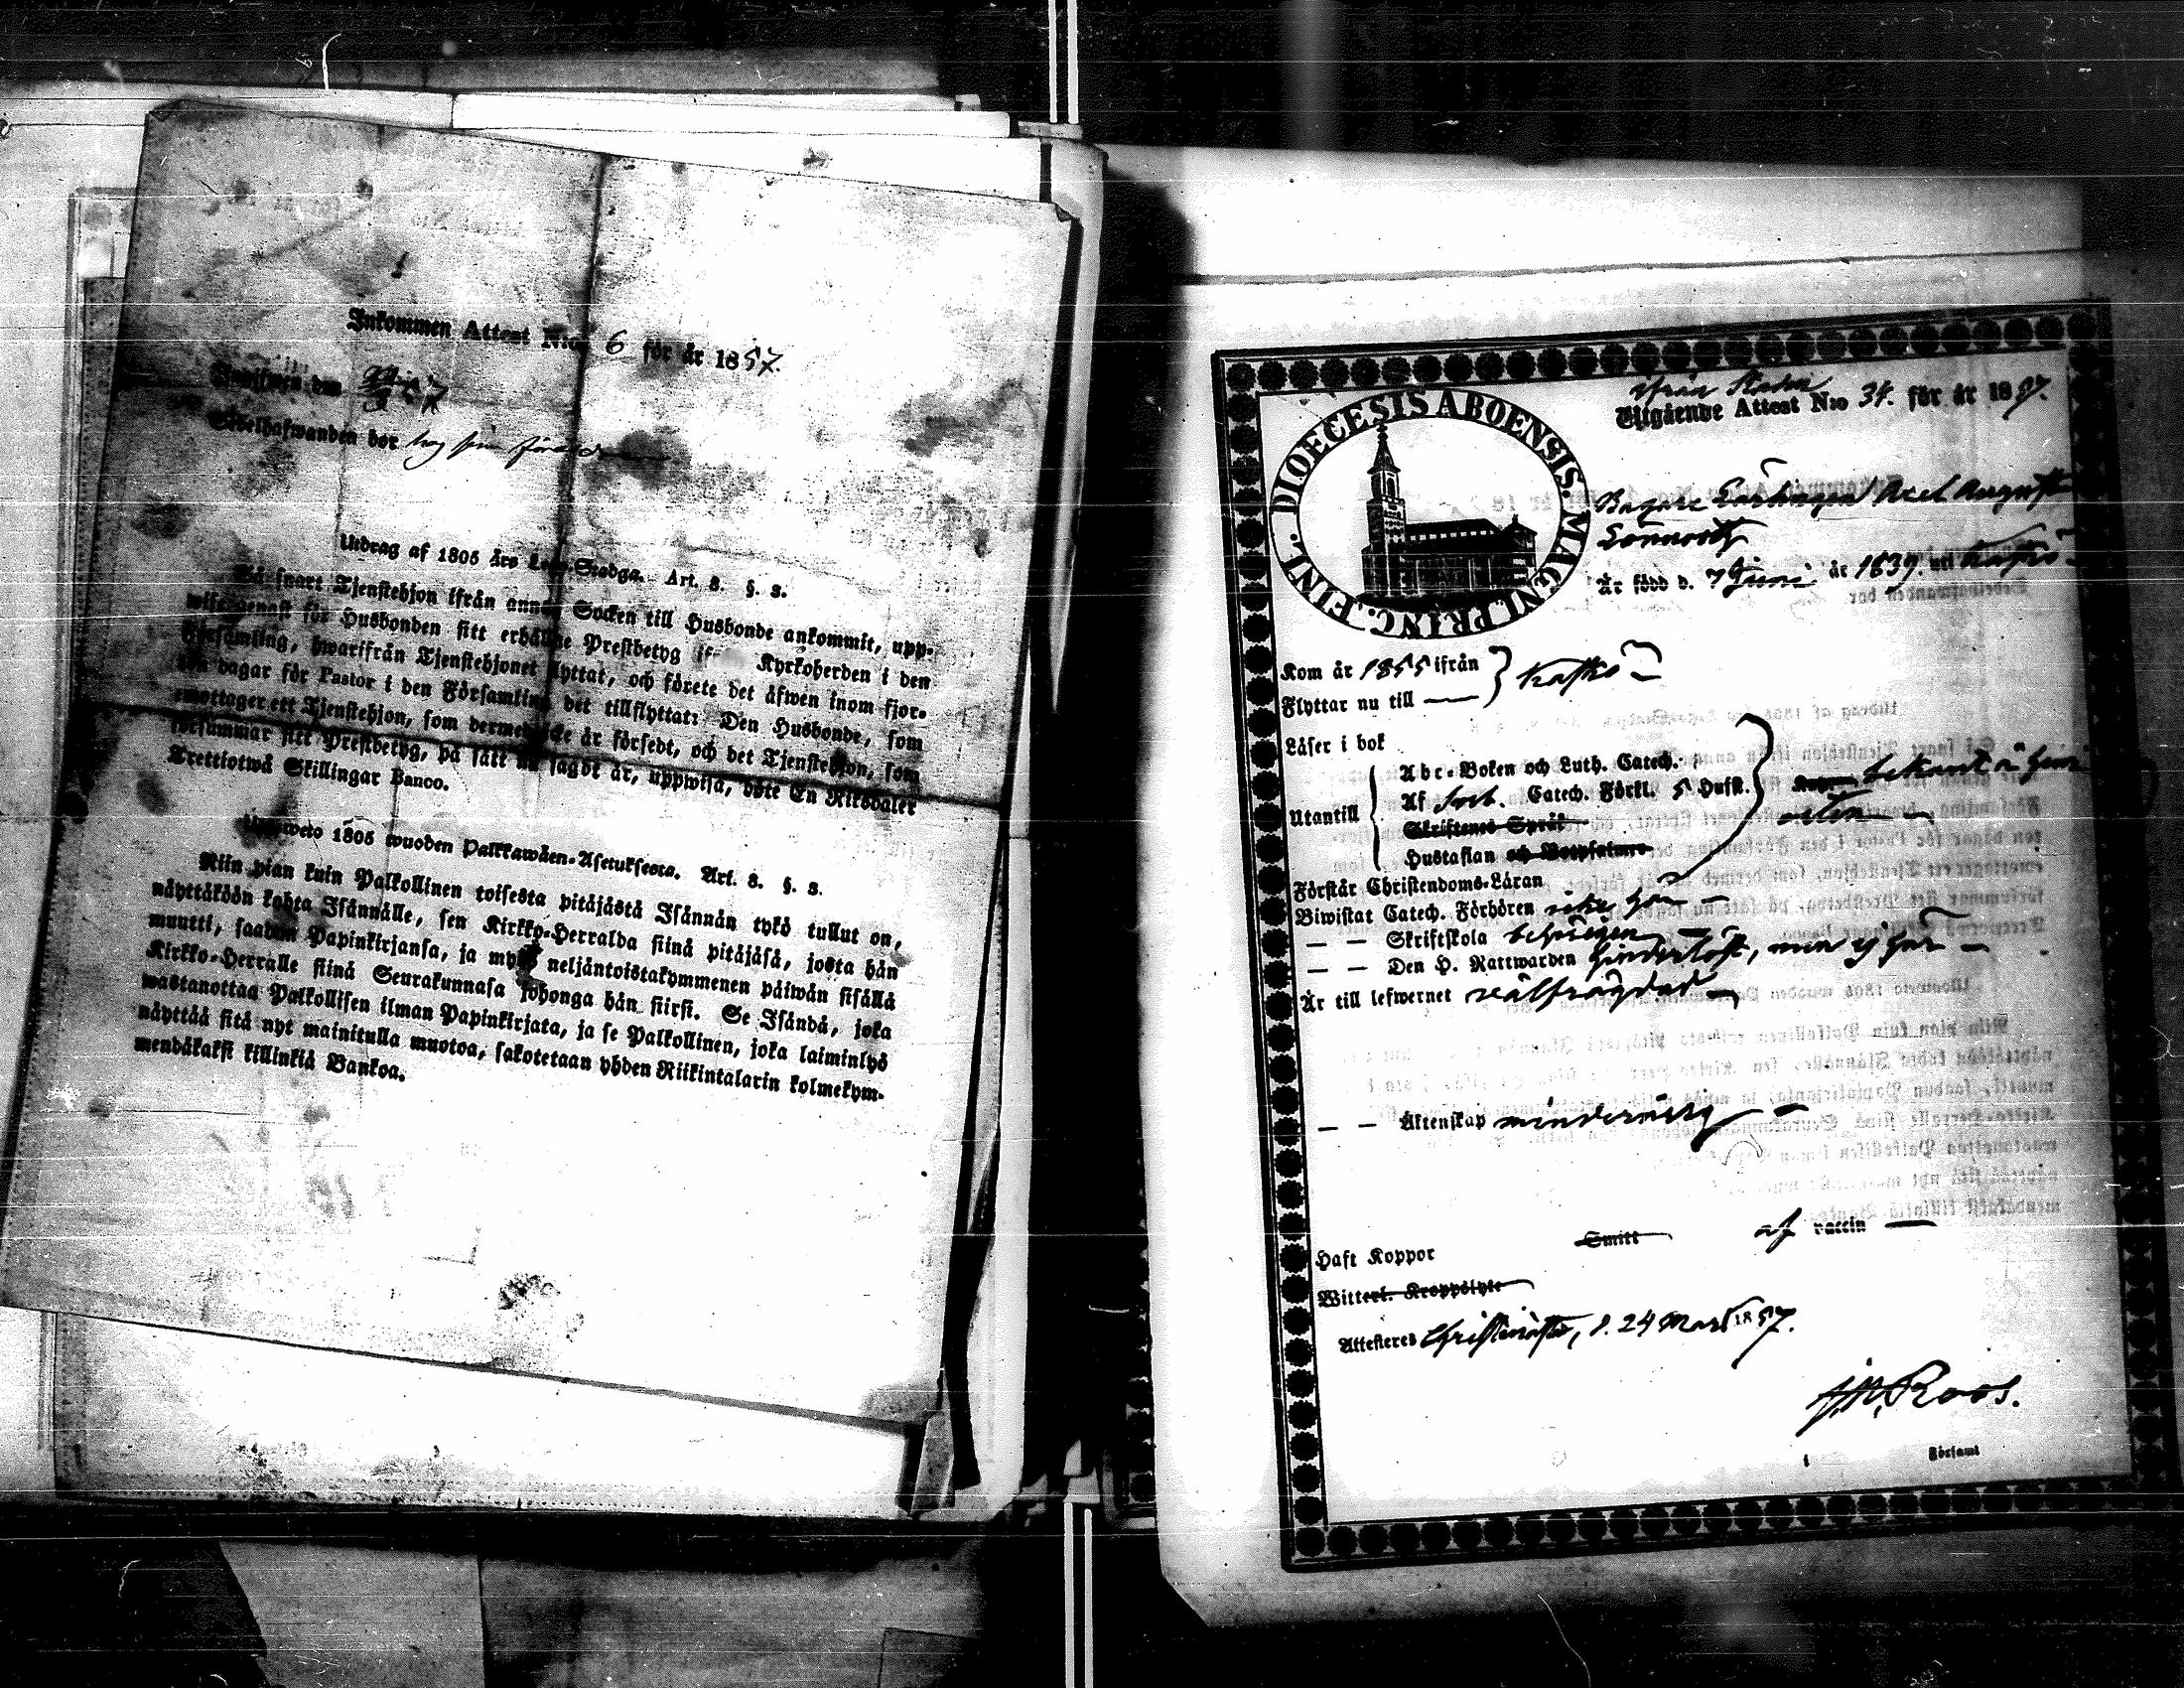 Inkommen Attest N:o 6 för år 1857.
den
Sedelhafwanden bor hos sin
Utdrag af 1805 års Lego-Stadga. Art. 8. §. 8.
Så snart Tjenstehjon ifrån annan Socken till Husbonde ankommit, upp-
wise genast för Husbonden sitt erhållne Prestbetyg ifrån Kyrkoherden i den
Församling, hwarifrån Tjenstehjonet flyttat, och förete det äfwen inom fjor-
ton dagar för Pastor i den Församling det tillflyttat: Den Husbonde, som
emottager ett Tjenstehjon, som dermed icke är försedt, och det Tjenstehjon, som
försummar sitt Prestbetyg, på sätt nu sagdt är, uppwisa, böte En Riksdaler
Trettiotwå Skillingar Banco.
1805 wuoden Palkkawäen-Asetuksesta. Art. 8. §. 8.
Niin pian kuin Palkollinen toisesta pitäjästä Isännän tykö tullut on,
näyttäköön kohta Isännälle, sen Kirkko-Herralda siinä pitäjäsä, josta hän
muutti, saadun Papinkirjansa, ja myös neljäntoistakymmenen päiwän sisällä
Kirkko-Herralle siinä Seurakunnasa johonga hän siirsi. Se Isändä, joka
wastanottaa Palkollisen ilman Papinkirjata, ja se Palkollinen, joka laiminlyö
näyttää sitä nyt mainitulla muotoa, sakotetaan yhden Riikintalarin kolmekym-
mendäkaksi killinkiä Bankoa.
DIOECESIS ABOENSIS. MAGNI. PRINC. FINL.
ifrån Staden
Utgående Attest N:o 34. för år 1857.
Bagare Lärlingen Axel August
Är född d. 7 Juni år 1839. uti Kaskö
Kom år 1855 ifrån
Flyttar nu till — } Kaskö
Läser i bok
Abc-Boken och Luth. Catech.
Utantill Af Sveb. Catech. Förkl. 5 Hufst.
Skriftenes Språk
Hustaflan och Botpsalmer
Förstår Christendoms-Läran
Biwistat Catech. Förhören
— — Skriftskola begången
— — Den H. Nattwarden hinderlöst, men ej här
Är till lefwernet välfrägdad
— — Äktenskap minderårig
Haft Koppor Smitt af vaccin
Witterl. Kroppslyte
Attesteras Christinestad, d. 24 Mars 1857.
J. M. Roos.
i Församl